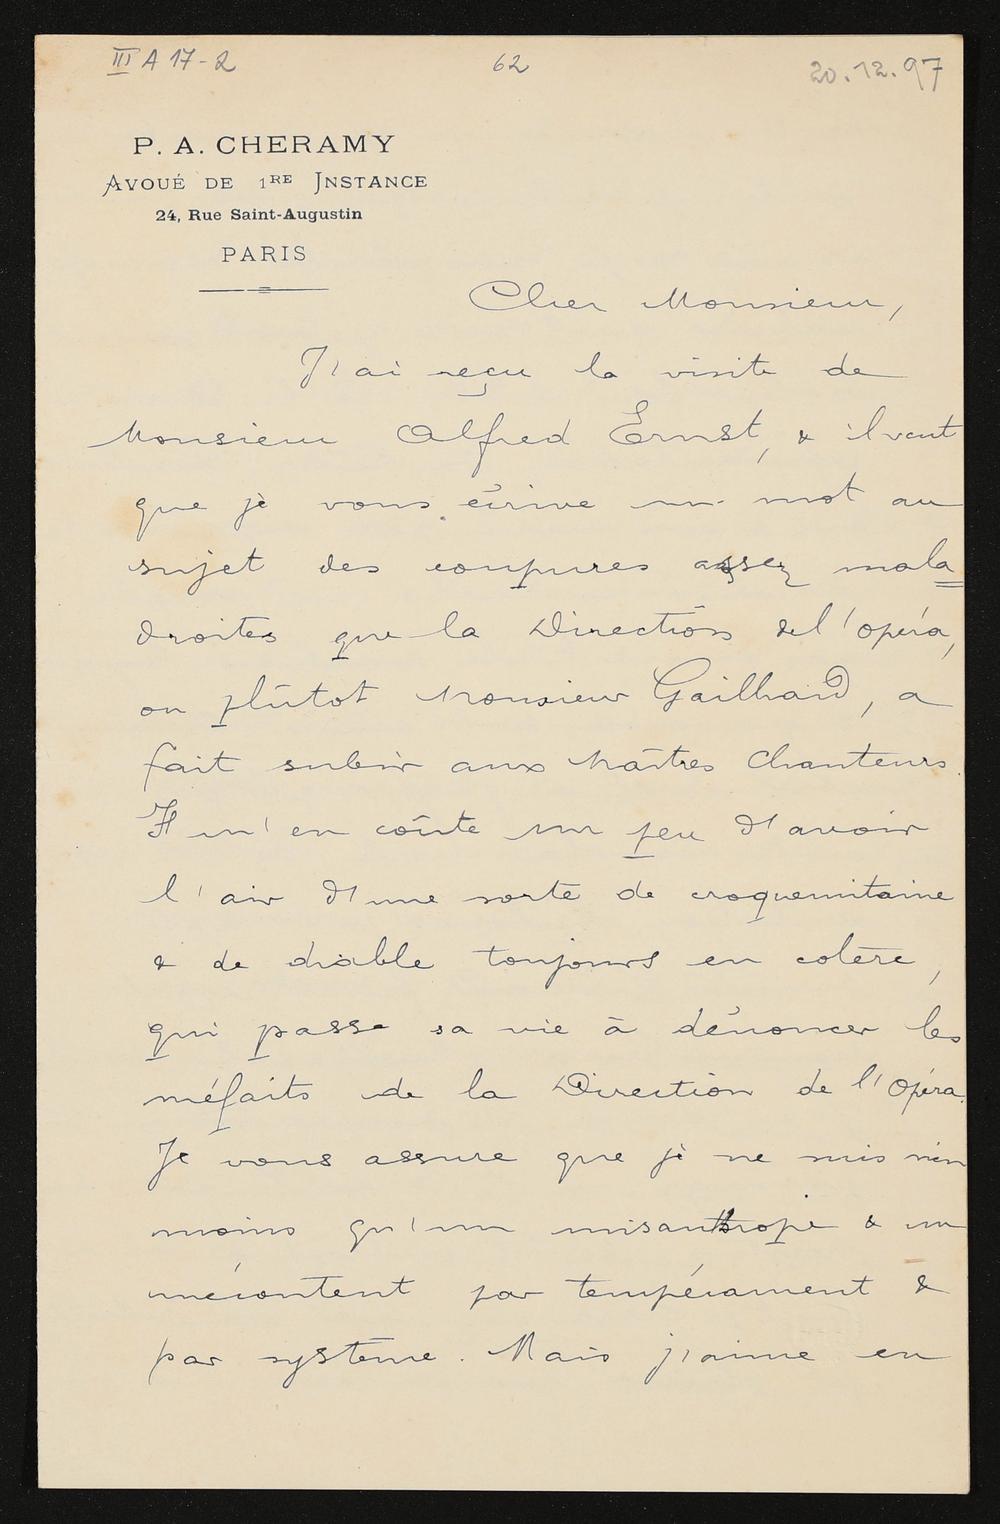 III A 17-2 62 20.12.97
P. A. CHERAMY
AVOUÉ DE 1RE INSTANCE
24, Rue Saint-Augustin
PARIS
Cher Monsieur,
J'ai reçu la visite de
Monsieur Alfred Ernst, & il veut
que je vous écrive un mot au
sujet des coupures assez mala=
droites que la Direction de l'opéra,
ou plûtot Monsieur Gailhard, a
fait subir aux Maîtres Chanteurs.
Il m'en coûte un peu d'avoir
l'air d'une sorte de croquemitaine
& de diable toujours en colère,
qui passe sa vie à dénoncer les
méfaits de la Direction de l'Opéra.
Je vous assure que je ne suis rien
moins qu'un misanthrope & un
mécontent par tempérament &
par système. Mais j'aime en